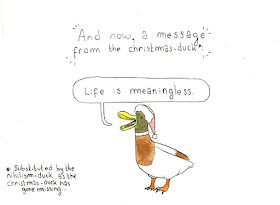 And now, a message
from the christmas-duck*:
Life is meaningless.
* Substituted by the
nihilism-duck as the
christmas-duck has
gone missing.